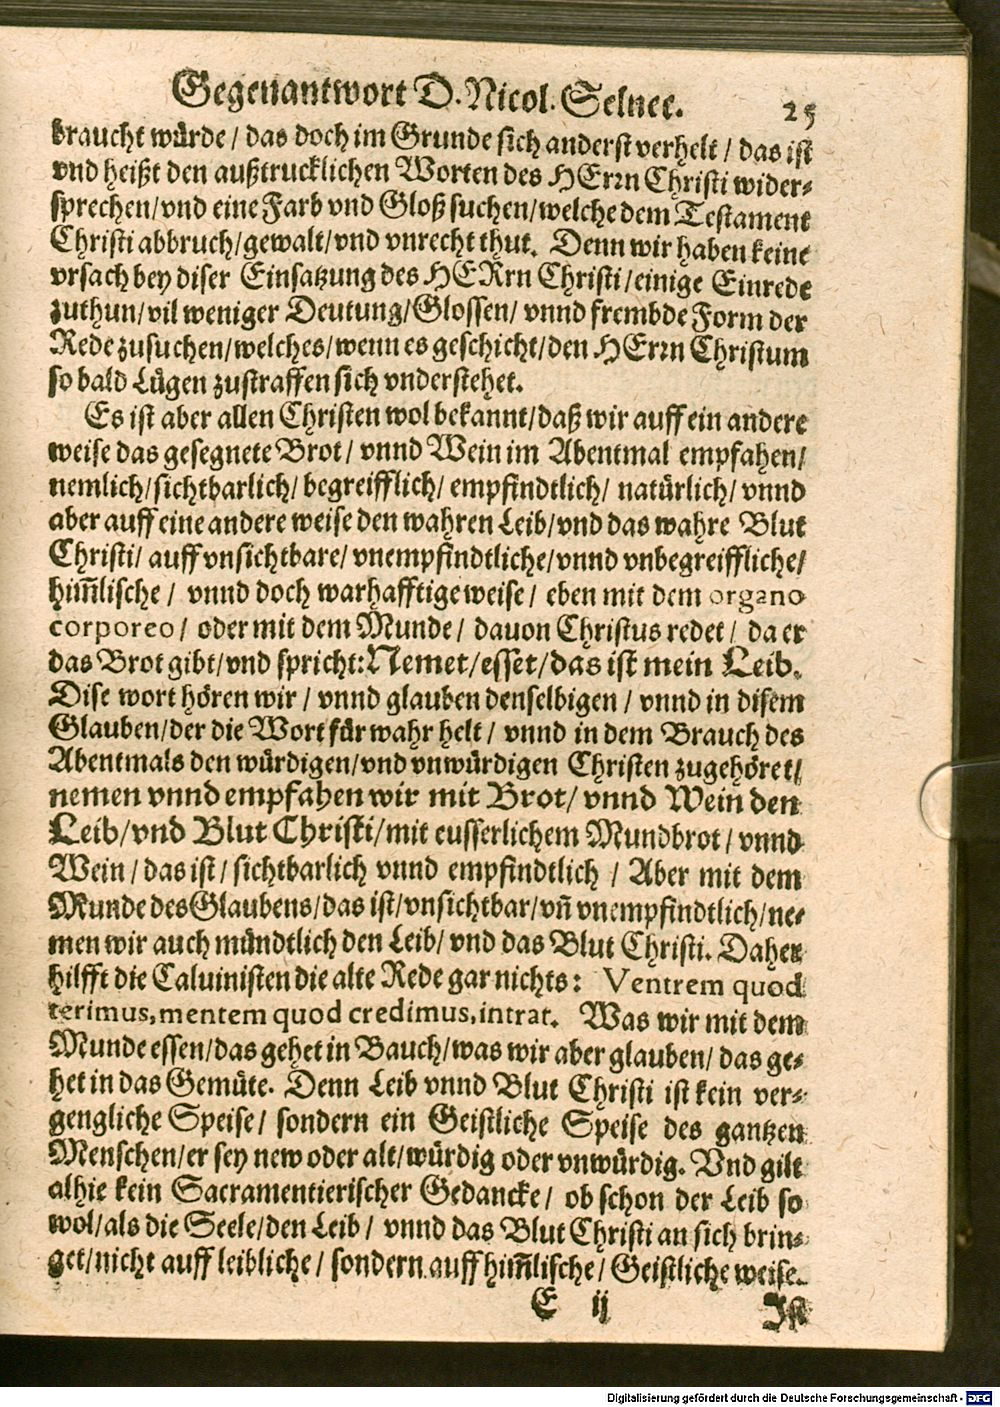 Gegenantwort D. Nicol. Selnec.
25
braucht würde / das doch im Grunde sich anderst verhelt / das ist
vnd heißt den außtrucklichen Worten des HErrn Christi wider-
sprechen/vnd eine Farb vnd Gloß suchen/welche dem Testament
Christi abbruch/gewalt/vnd vnrecht thut. Denn wir haben keine
vrsach bey diser Einsatzung des HERrn Christi/einige Einrede
zuthun/vil weniger Deutung/Glossen/ vnnd frembde Form der
Rede zusuchen/welches/wenn es geschicht/den HErrn Christum
so bald Lügen zustraffen sich vnderstehet.
Es ist aber allen Christen wol bekannt/daß wir auff ein andere
weise das gesegnete Brot/ vnnd Wein im Abentmal empfahen/
nemlich/sichtbarlich/ begreifflich/ empfindtlich/ natürlich/ vnnd
aber auff eine andere weise den wahren Leib/vnd das wahre Blut
Christi/ auff vnsichtbare/ vnempfindtliche/vnnd vnbegreiffliche/
him̃lische / vnnd doch warhafftige weise/ eben mit dem organo
corporeo/ oder mit dem Munde/ dauon Christus redet / da er
das Brot gibt/vnd spricht: Nemet/esset/das ist mein Leib.
Dise wort hören wir / vnnd glauben denselbigen / vnnd in disem
Glauben/der die Wort für wahr helt / vnnd in dem Brauch des
Abentmals den würdigen/vnd vnwürdigen Christen zugehöret/
nemen vnnd empfahen wir mit Brot/ vnnd Wein den
Leib/vnd Blut Christi/mit eusserlichem Mundbrot / vnnd
Wein / das ist / sichtbarlich vnnd empfindtlich / Aber mit dem
Munde des Glaubens/das ist/vnsichtbar/vñ vnempfindtlich/ne-
men wir auch mündtlich den Leib/ vnd das Blut Christi. Daher
hilfft die Caluinisten die alte Rede gar nichts: Ventrem quod
terimus, mentem quod credimus, intrat. Was wir mit dem
Munde essen/das gehet in Bauch/was wir aber glauben/ das ge-
het in das Gemüte. Denn Leib vnnd Blut Christi ist kein ver-
gengliche Speise/ sondern ein Geistliche Speise des gantzen
Menschen/er sey new oder alt/würdig oder vnwürdig. Vnd gilt
alhie kein Sacramentierischer Gedancke/ ob schon der Leib so
wol/als die Seele/den Leib / vnnd das Blut Christi an sich brin-
get/nicht auff leibliche / sondern auff him̃lische/ Geistliche weise.
E ij
Ist
Digitalisierung gefördert durch die Deutsche Forschungsgemeinschaft - DFG